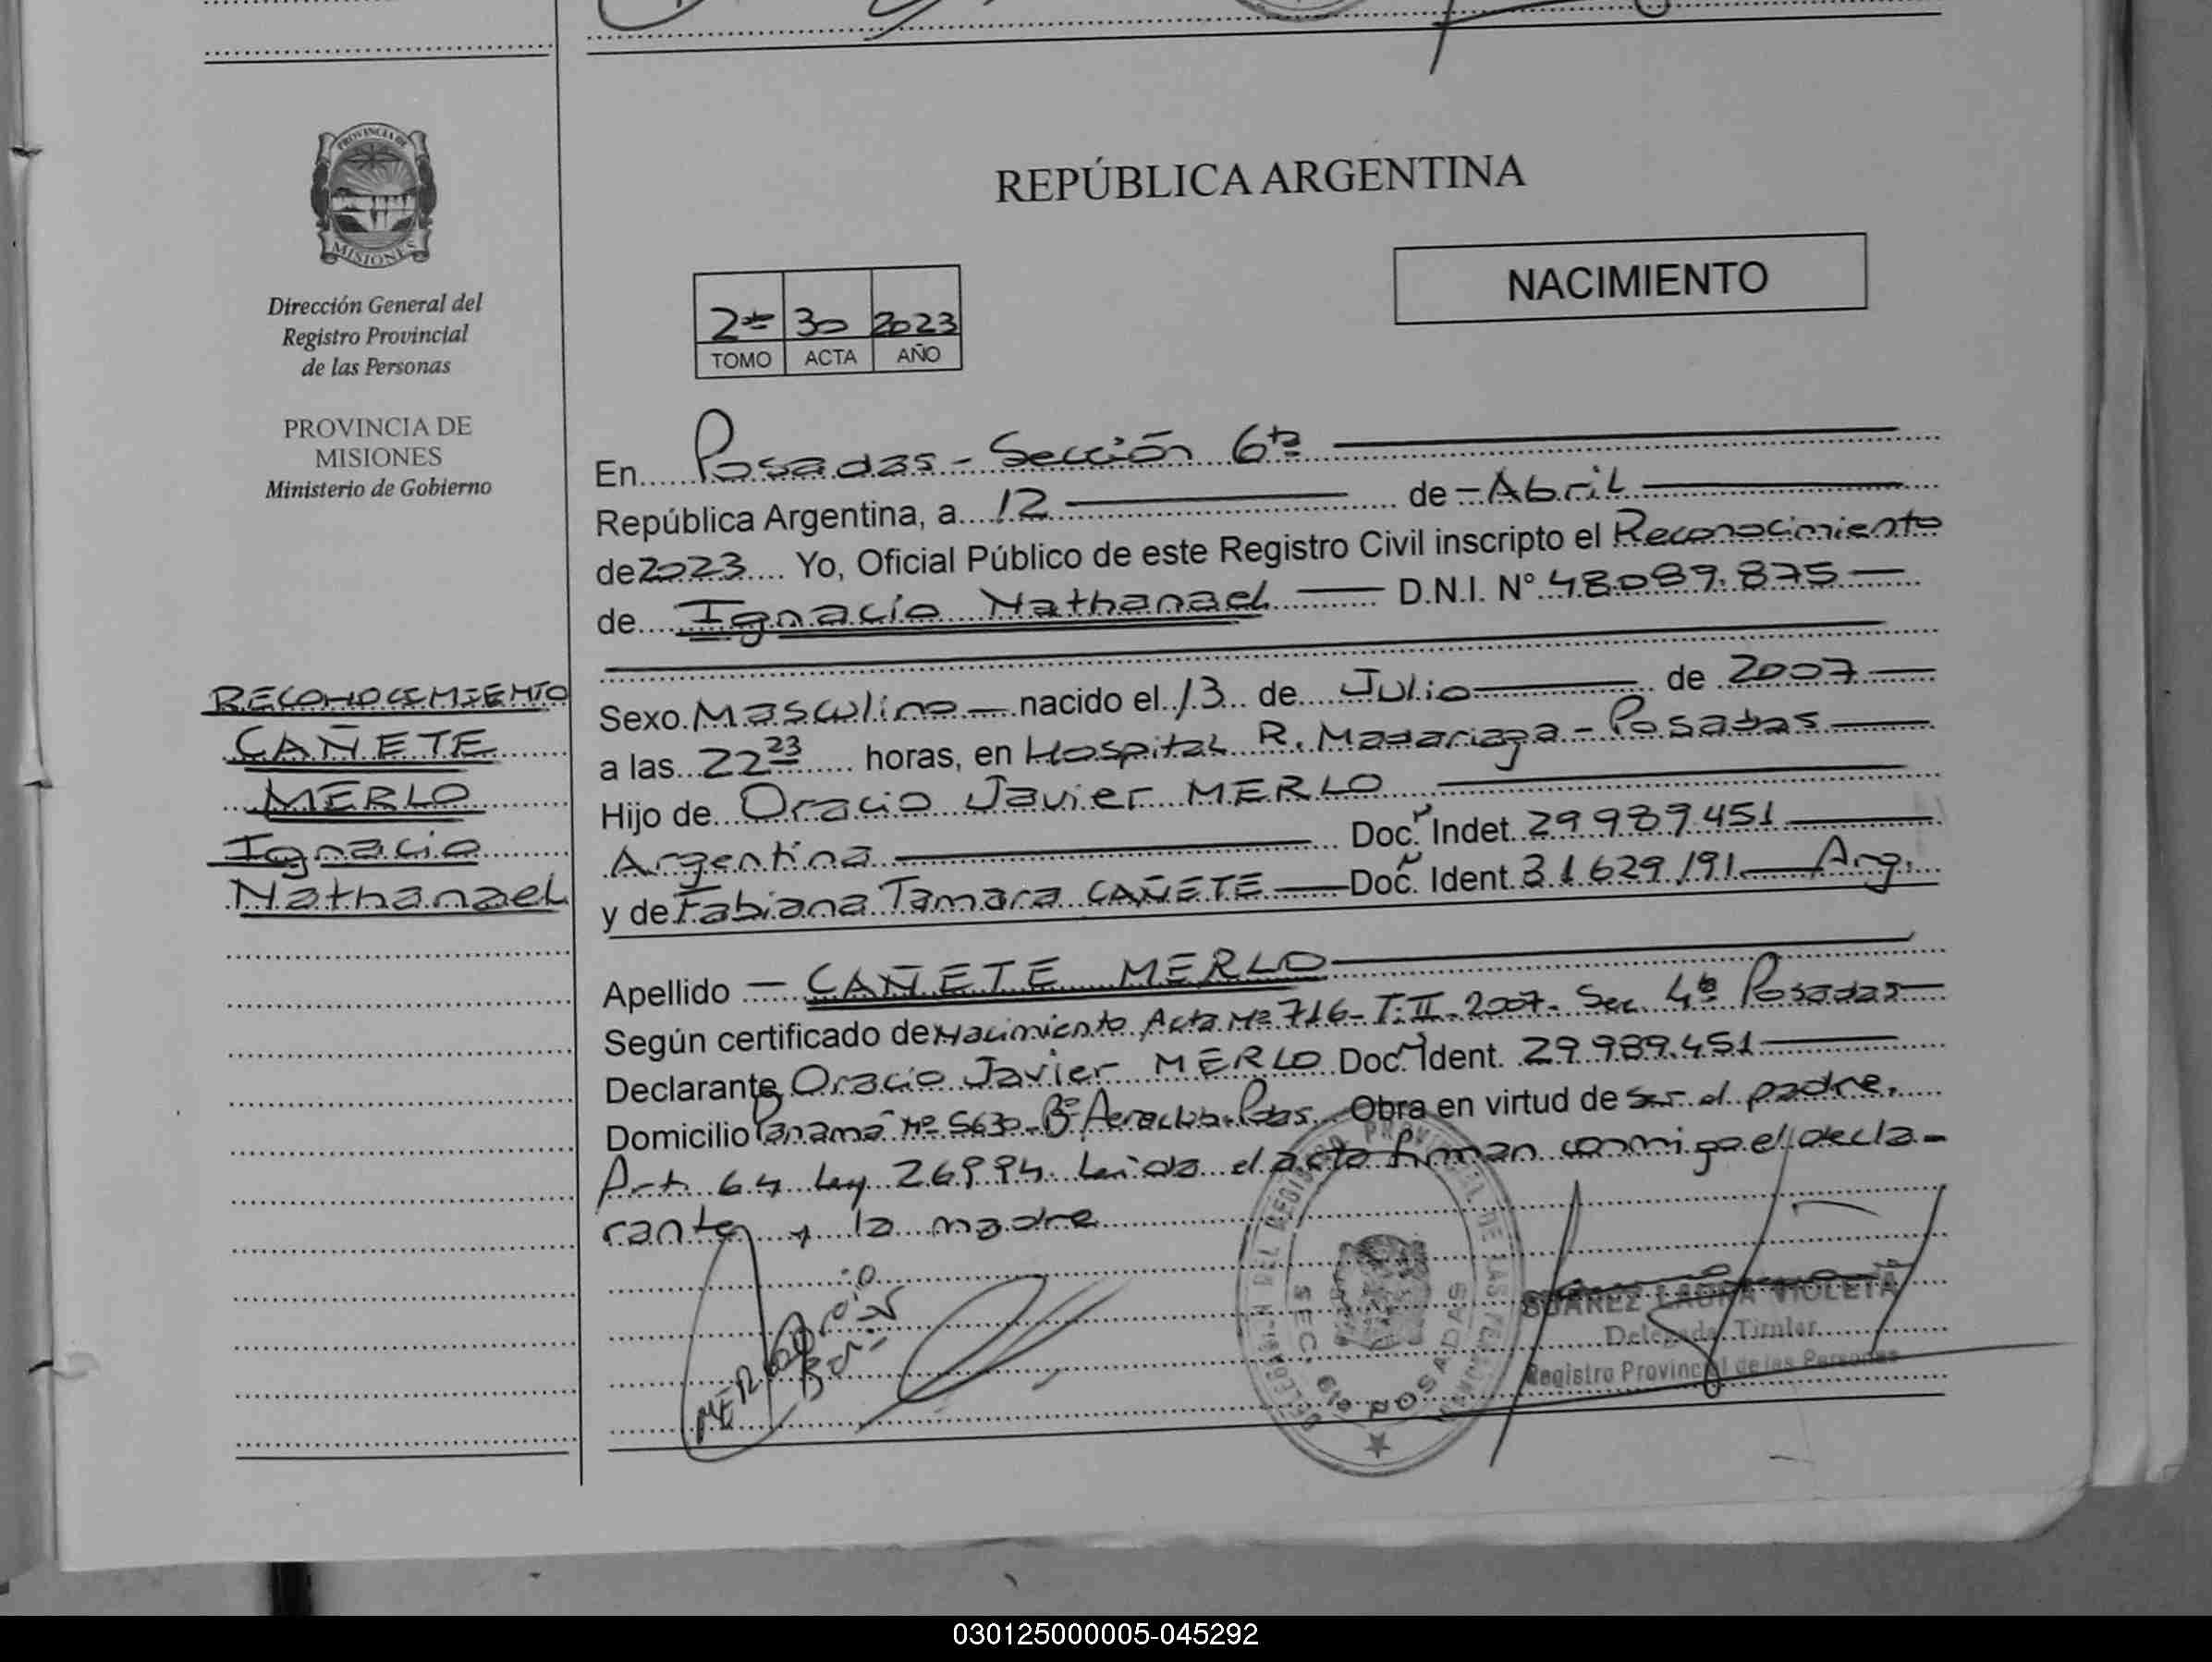 PROVINCIA DE
MISIONES
Dirección General del
Registro Provincial
de las Personas
PROVINCIA DE
MISIONES
Ministerio de Gobierno
RECONOCIMIENTO
CAÑETE
MERLO
Ignacio
Nathanael
REPÚBLICA ARGENTINA
NACIMIENTO
2to 30 2023
TOMO ACTA AÑO
En Posadas - Sección 6ta
República Argentina, a 12 de Abril
de 2023 Yo, Oficial Público de este Registro Civil inscripto el Reconocimiento
de Ignacio Nathanael D.N.I. N° 48.089.875
Sexo Masculino nacido el 13 de Julio de 2007
a las 22 23 horas, en Hospital R. Madariaga - Posadas
Hijo de Oracio Javier MERLO
Argentina Doc. Indet. 29.989.451
y de Fabiana Tamara CAÑETE Doc. Ident. 31.629.191 Arg.
Apellido CAÑETE MERLO
Según certificado de Nacimiento Acta Nº 716 - T: II - 2007 - Sec. 4ta Posadas
Declarante Oracio Javier MERLO Doc. Ident. 29.989.451
Domicilio Panamá Nº 5630 - Bº Aeroclub - Pdas. Obra en virtud de ser el padre.
Art. 64 Ley 26994. Leída el acta firman conmigo el decla-
rante y la madre
MERLO
DELEGACIÓN DEL REGISTRO PROVINCIAL DE LAS PERSONAS
SEC. 6ta POSADAS
SUAREZ LAURA VIOLETA
Delegada Titular
Registro Provincial de las Personas
030125000005-045292